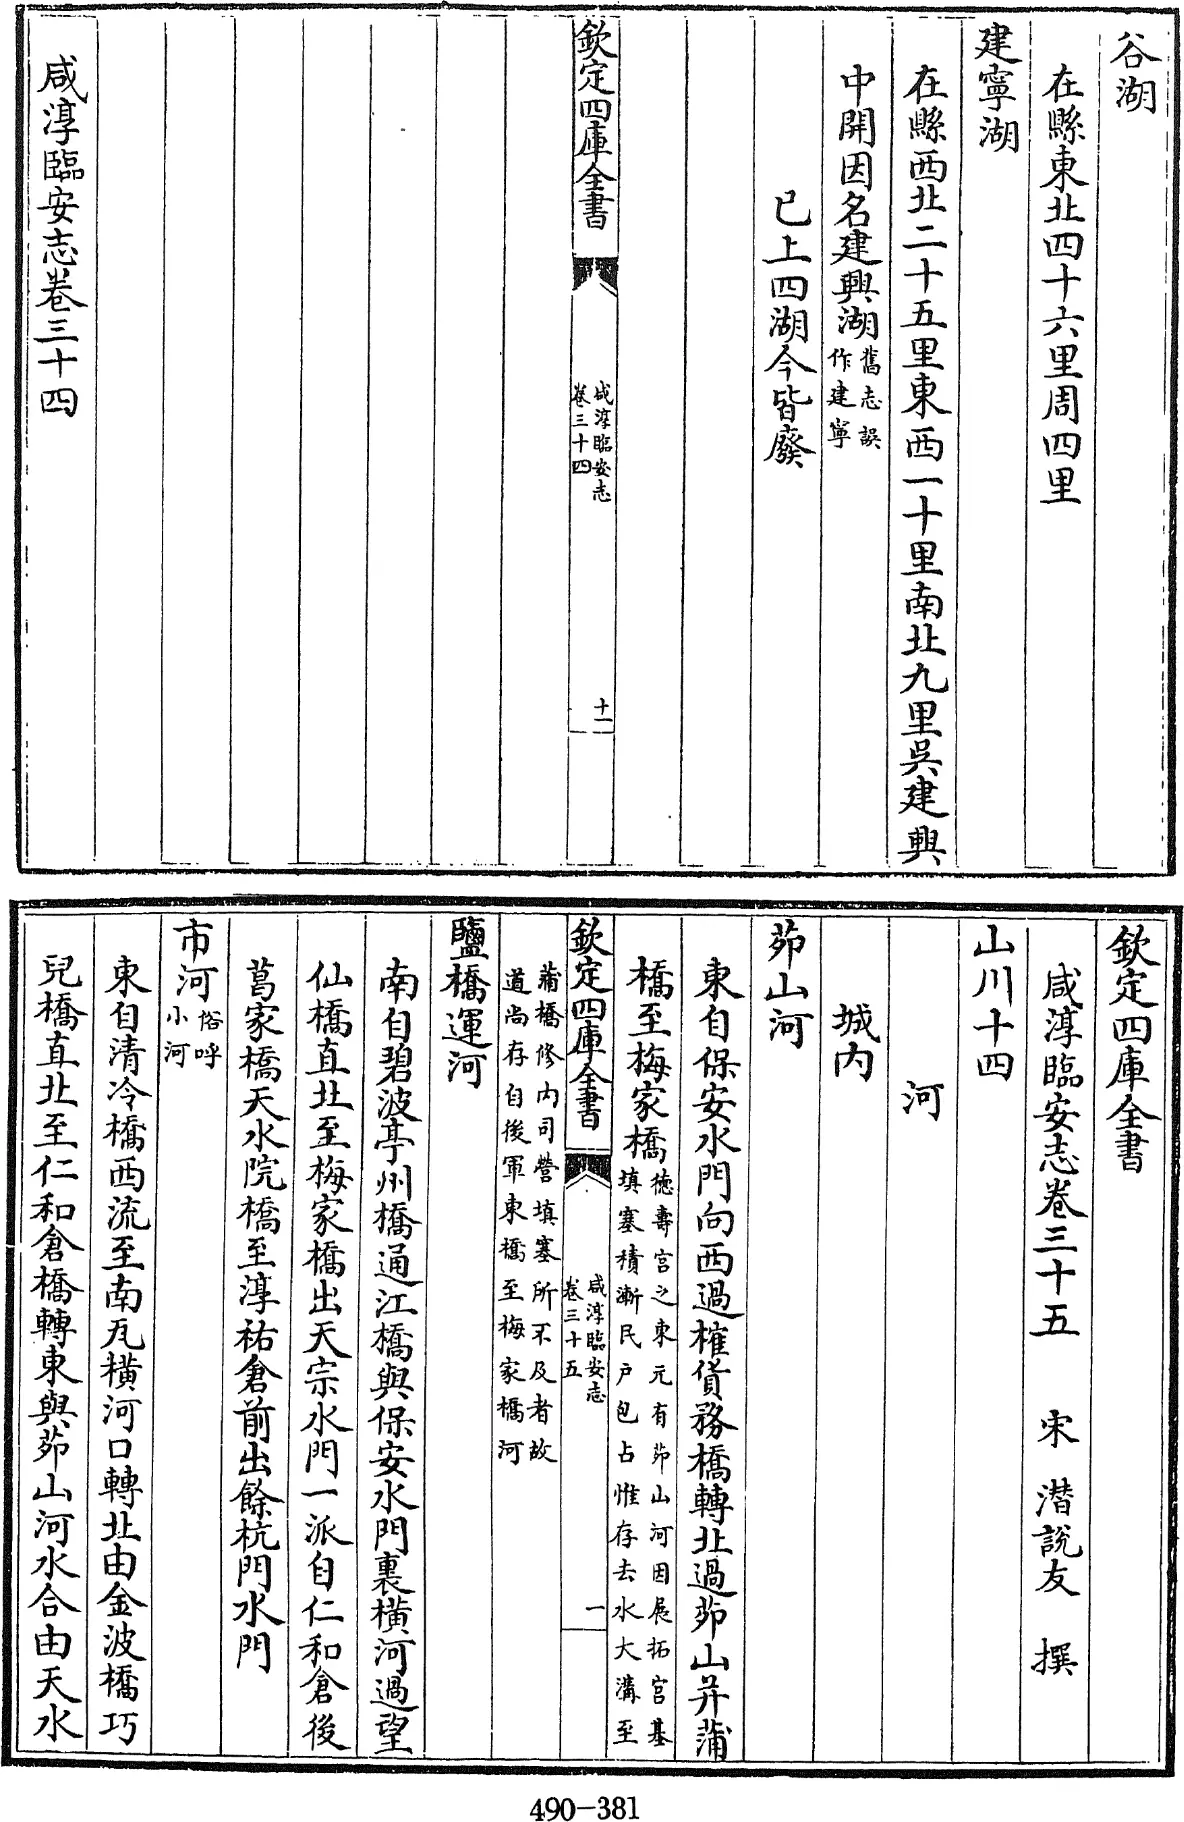 谷湖
在縣東北四十六里周四里
建寧湖
在縣西北二十五里東西一十里南北九里吳建興
中開因名建興湖舊志誤作建寧
已上四湖今皆廢
欽定四庫全書
咸淳臨安志
卷三十四
十一
咸淳臨安志卷三十四
欽定四庫全書
咸淳臨安志卷三十五 宋 潛說友 撰
山川十四
河
城内
茆山河
東自保安水門向西過榷貨務橋轉北過茆山并蒲
橋至梅家橋德壽宮之東元有茆山河因展拓宮基填塞積漸民戶包占惟存去水大溝至
欽定四庫全書
咸淳臨安志
卷三十五
一
蒲橋修内司營填塞所不及者故道尚存自後軍東橋至梅家橋河
鹽橋運河
南自碧波亭州橋通江橋與保安水門裏橫河過望
仙橋直北至梅家橋出天宗水門一派自仁和倉後
葛家橋天水院橋至淳祐倉前出餘杭門水門
市河俗呼小河
東自清冷橋西流至南瓦橫河口轉北由金波橋巧
兒橋直北至仁和倉橋轉東與茆山河水合由天水
490-381